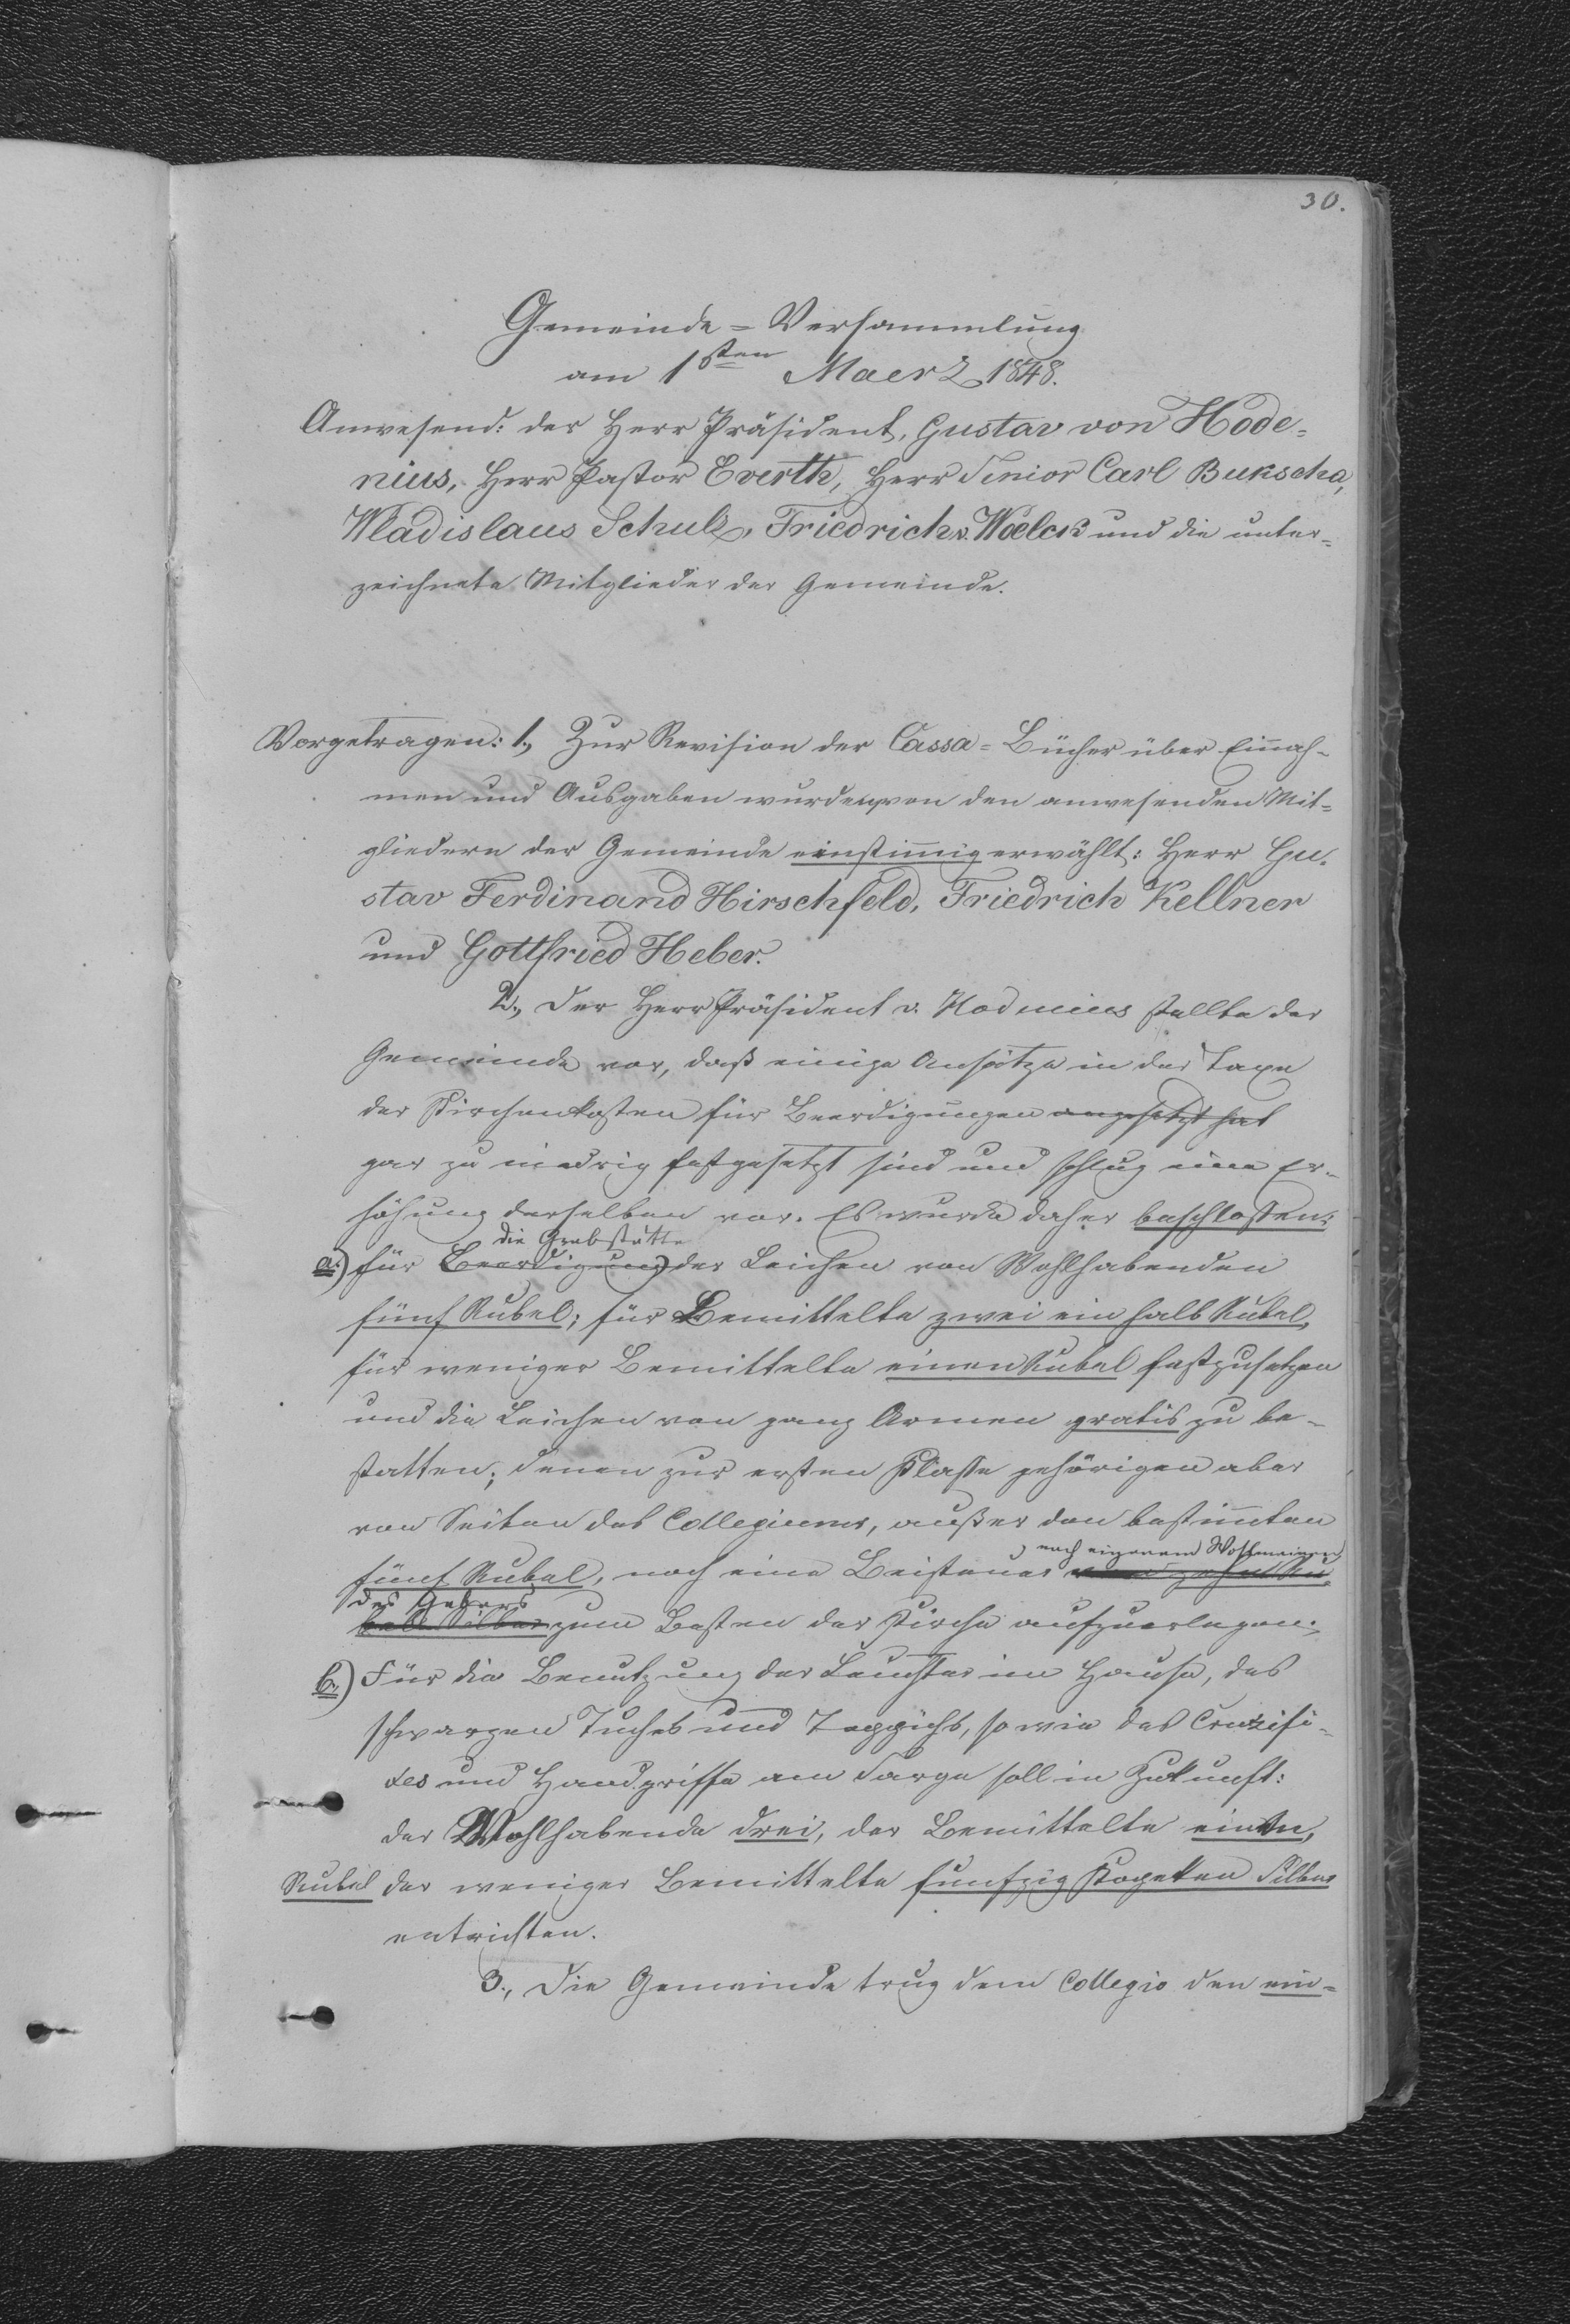 30.
Gemeinde=Versammlung
am 1sten Maerz 1848.
Anwesend: der Herr Präsident, Gustav von Hode=
nius, Herr Pastor Everth, Herr Senior Carl Bukscha,
Wladislaus Schulz, Friedrich v. Woelck und die unter=
zeichnete Mitglieder der Gemeinde.
Vorgetragen: 1., Zur Revision der Cassa=Bücher über Einnah=
men und Ausgaben wurden von den anwesenden Mit=
gliedern der Gemeinde einstimmig erwählt: Herr Gu=
stav Ferdinand Hirschfeld, Friedrich Kellner
und Gottfried Heber.
2., Der Herr Präsident v. Hodenius stellte der
Gemeinde vor, daß einige Ansätze in der Taxe
der Kirchenkosten für Beerdigungen angesetzt hat
gar zu niedrig festgesetzt sind und schlug eine Er=
höhung derselben vor. Es wurde daher beschlossen:
die Grabstätte
a.) für Beerdigung der Leichen von Wohlhabenden
fünf Rubel; für Bemittelte zwei ein halb Rubel,
für weniger Bemittelte einen Rubel festzusetzen
und die Leichen von ganz Armen gratis zu be=
statten; denen zur ersten Klasse gehörigen aber
von Seiten des Collegiums, außer den bestimmten
nach eigenem Wohlmeinen
fünf Rubel, noch eine Beisteuer von zehn Ru=
des Gebers
bel Silber zum Besten der Kirche aufzuerlegen;
b.) Für die Benutzung der Leuchter im Hause, des
schwarzen Tuches und Teppichs, so wie des Crucifi=
xes und Handgriffe am Sarge soll in Zukunft:
der Wohlhabende drei, der Bemittelte einen,
Rubel der weniger Bemittelte funfzig Kopeken Silber
entrichten.
3., Die Gemeinde trug dem Collegio den ein=